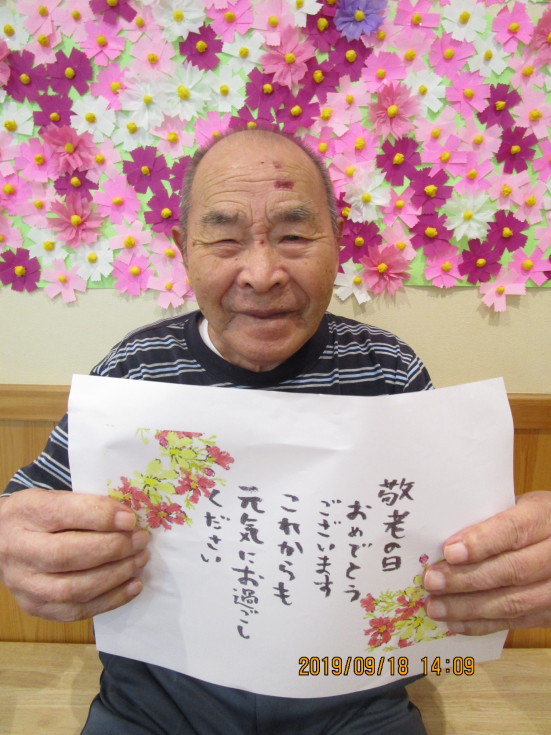 敬老の日
おめでとう
ございます
これからも
元気にお過ごし
ください
2019/09/18 14:09